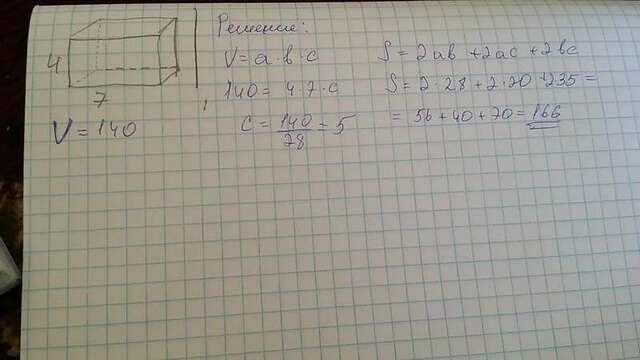 4
7
V = 140
Решение:
V = a · b · c
140 = 4 · 7 · c
c = 140/28 = 5
S = 2ab + 2ac + 2bc
S = 2 · 28 + 2 · 20 + 235 =
= 56 + 40 + 70 = 166